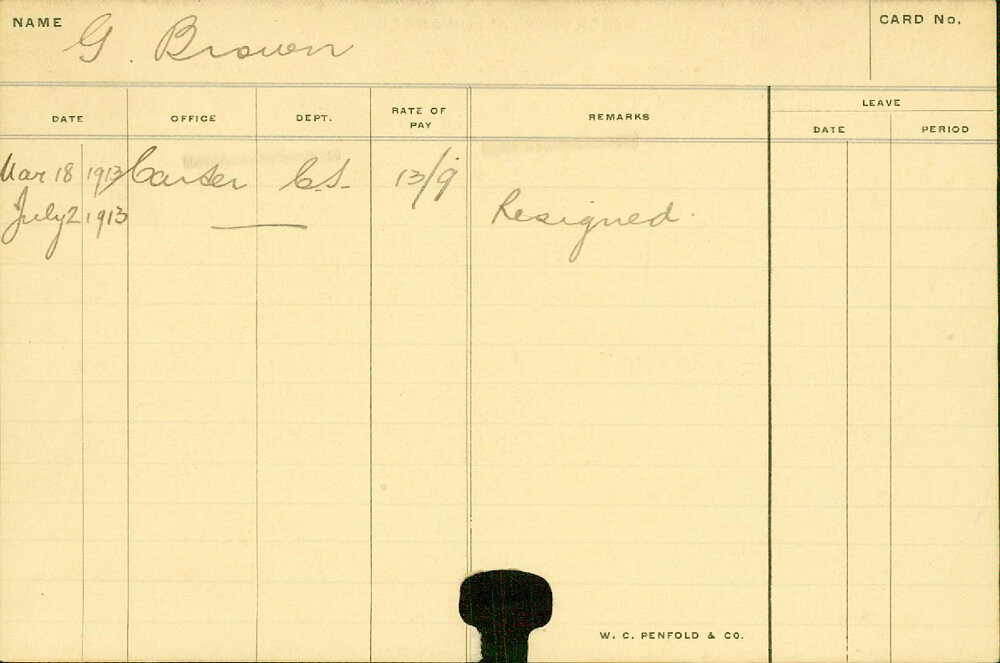 NAME G. Brown CARD No.
DATE OFFICE DEPT. RATE OF PAY REMARKS LEAVE
DATE PERIOD
Mar 18 1913 Carter C.S. 13/9
July 2 1913 — Resigned.
W. C. PENFOLD & CO.